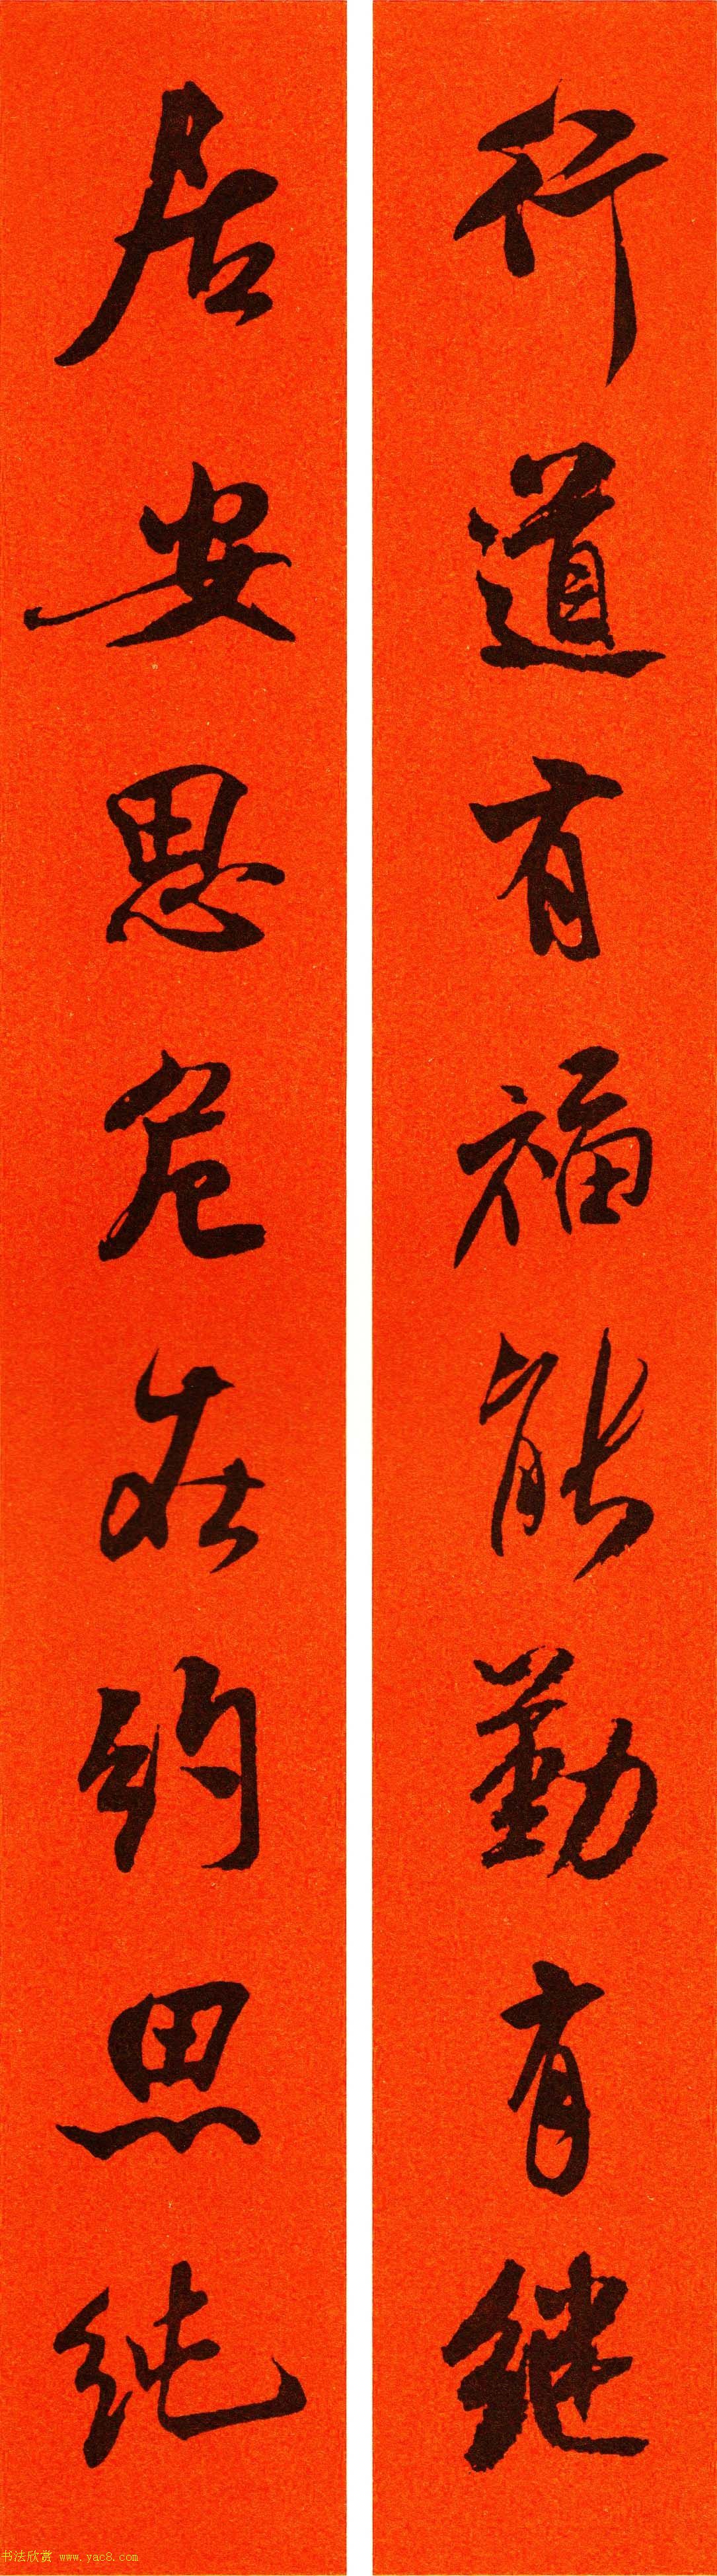 行道有福能勤有继
居安思危在约思纯
书法欣赏 www.yac8.com